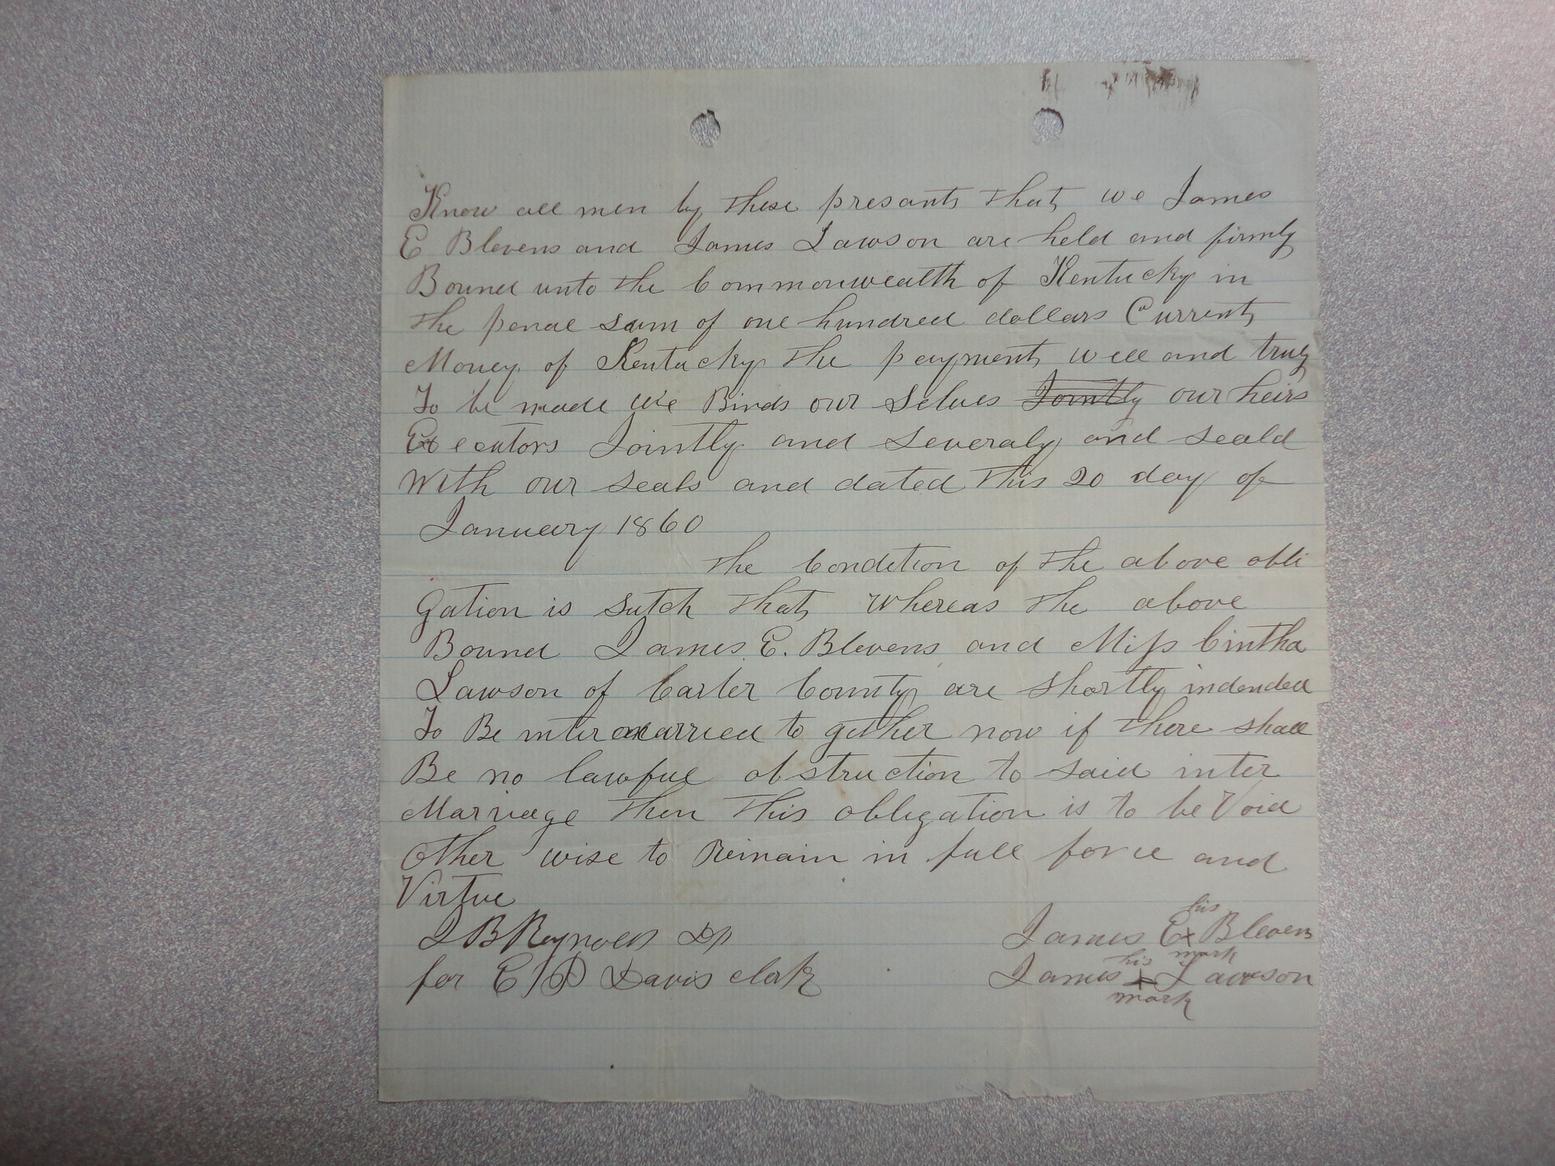 Know all men by these presants that we James
E Blevens and James Lawson are held and firmly
Bound unto the Commonwealth of Kentucky in
the penal sum of one hundred dollars Current
Money of Kentucky the payment well and truly
To be made we Binds our Selves Jointly our heirs
Executors Jointly and Severaly and seald
With our seals and dated this 20 day of
January 1860
the Condition of the above obli
gation is sutch that whereas the above
Bound James E. Blevens and Miss Cintha
Lawson of Carter County are shortly indended
To Be intermarried to gether now if there shall
Be no lawful obstruction to said inter
Marriage then this obligation is to be Void
Other wise to Remain in full force and
Virtue
J B Reynolds
for E P Davis clark
his
James E x Blevens
mark
his
James x Lawson
mark